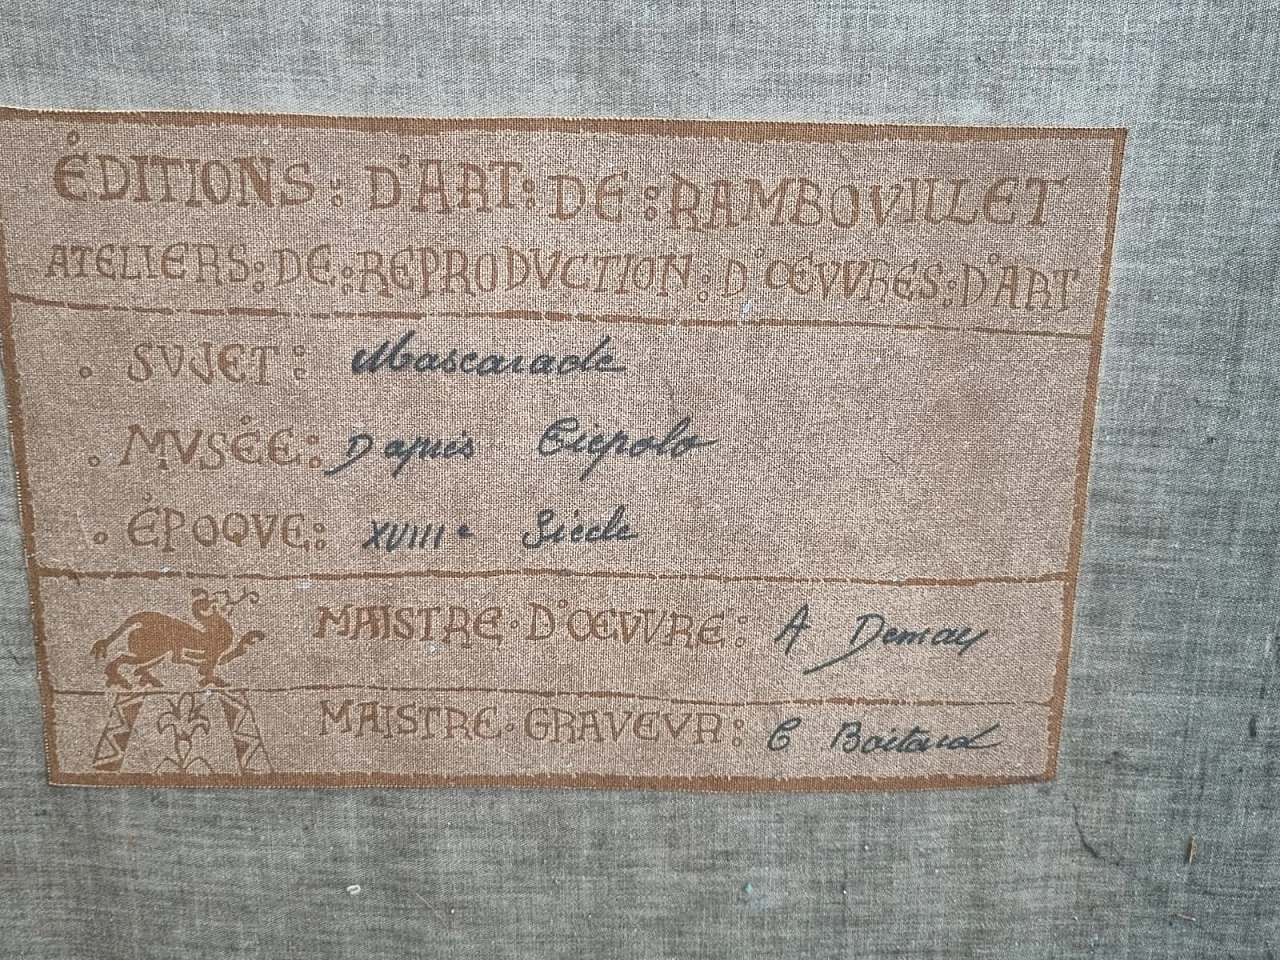 ÉDITIONS : D'ART : DE : RAMBOVILLET
ATELIERS : DE : REPRODVCTION : D'ŒVVRES : D'ART
SVJET : Mascarade
MVSÉE : D'après Tiepolo
ÉPOQVE : XVIIIe Siècle
MAISTRE · D'ŒVVRE : A Demay
MAISTRE · GRAVEVR : C Boitard